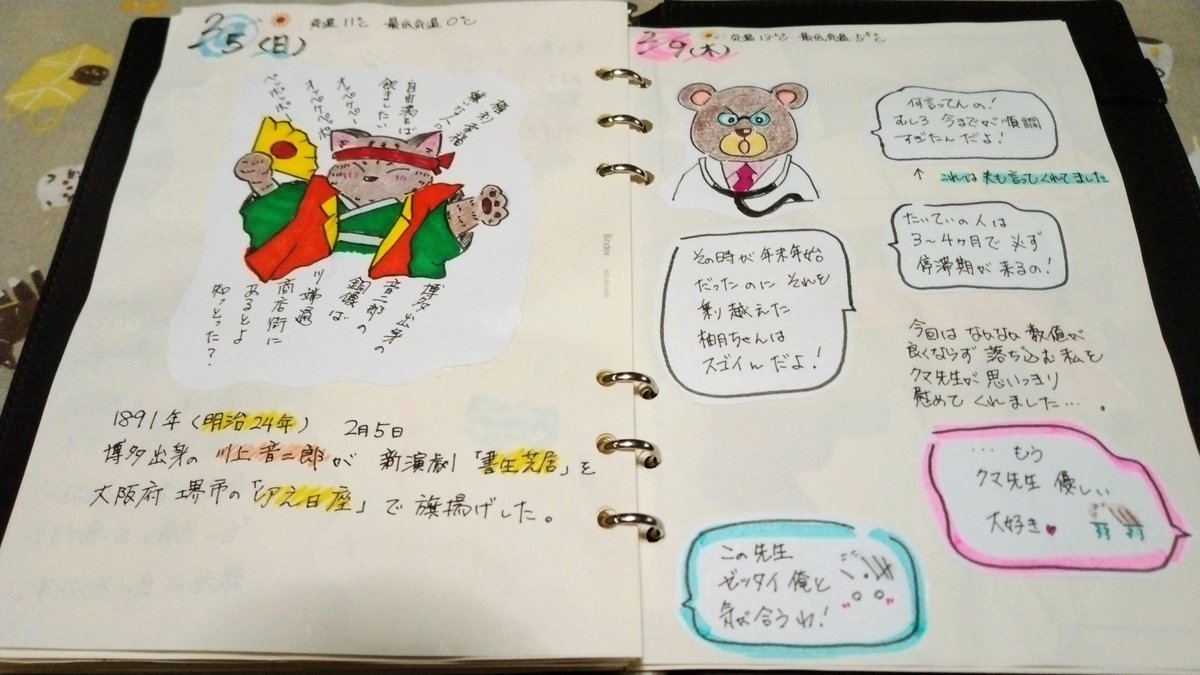 2/5(日) 気温 11℃ 最低気温 0℃
権利幸福
嫌いな人に
自由湯をば
飲ましたい
オッペケペ
オッペケペッポー
ペッポッポー
博多出身の
音二郎の
銅像ば
川端通
商店街に
あるとよ
知っとった?
1891年(明治24年) 2月5日
博多出身の 川上音二郎が 新演劇「書生芝居」を
大阪府 堺市の「卯之日座」で 旗揚げした。
2/9(木) 気温 13℃ 最低気温 5℃
何言ってんの!
むしろ 今までが順調
すぎたんだよ!
↑ これは夫も言ってくれてました
たいていの人は
3〜4ヶ月で 必ず
停滞期が来るの!
その時が年末年始
だったのに それを
乗り越えた
柚月ちゃんは
スゴイんだよ!
今回は なかなか 数値が
良くならず 落ち込む私を
クマ先生が 思いっきり
慰めて くれました… .
… もう
クマ先生 優しい
大好き♥
この先生
ゼッタイ 俺と
気が合うわ!
Bindex